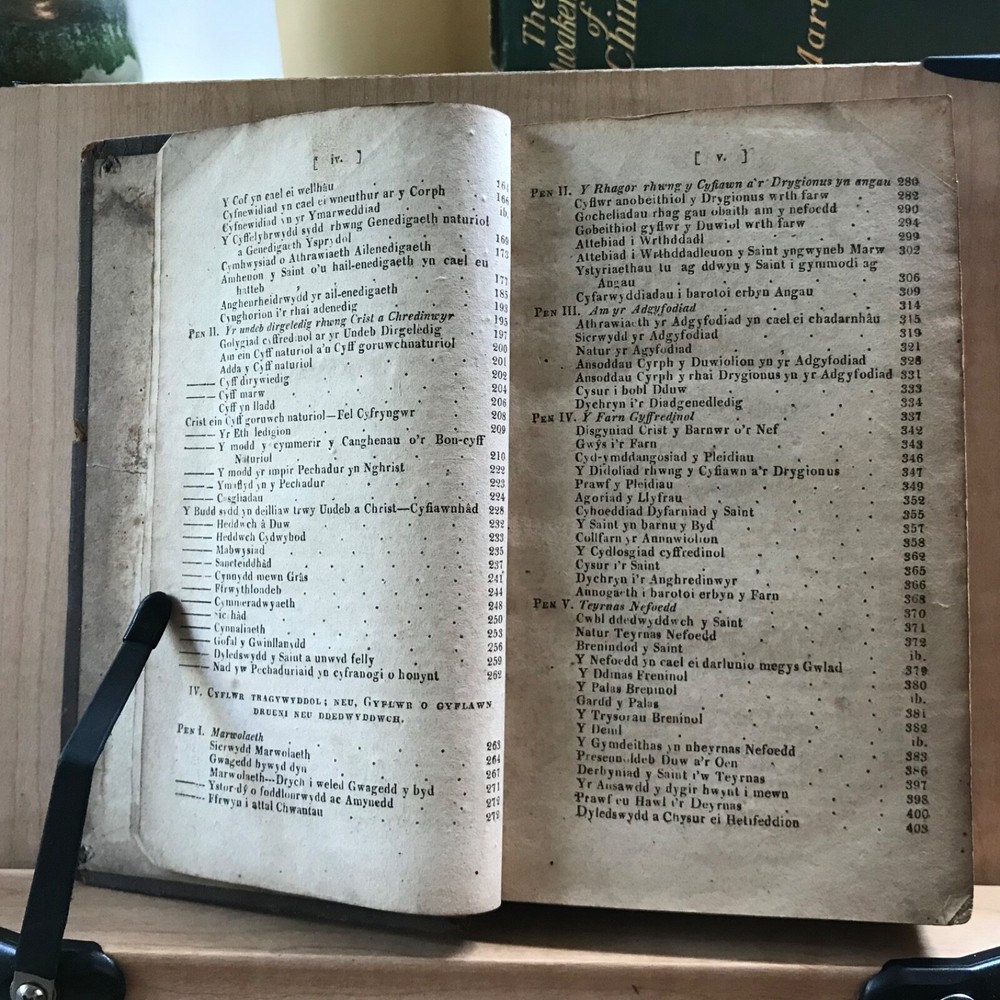 The
of
Mar
[ iv. ]
Y Cof yn cael ei wellhâu
Cyfnewidiad yn cael ei wneuthur ar y Corph
Cyfnewidiad yn yr Ymarweddiad ib.
Y Cyffelybrwydd sydd rhwng Genedigaeth naturiol
a Genedigaeth Ysprydol
Cymhwysiad o Athrawiaeth Ailenedigaeth 173
Amheuon y Saint o'u hail-enedigaeth yn cael eu
hatteb 177
Anghenrheidrwydd yr ail-enedigaeth 185
Cynghorion i'r rhai adenedig 193
Pen II. Yr undeb dirgeledig rhwng Crist a Chredinwyr 195
Golygiad cyffredinol ar yr Undeb Dirgeledig 197
Am ein Cyff naturiol a'n Cyff goruwchnaturiol 200
Adda y Cyff naturiol 201
—— Cyff dirywiedig 202
—— Cyff marw 204
Cyff yn lladd 206
Crist ein Cyff goruwch naturiol—Fel Cyfryngwr 208
—— Yr Etholedigion 209
—— Y modd y cymmerir y Canghenau o'r Bon-cyff
Naturiol 210
—— Y modd yr impir Pechadur yn Nghrist 222
—— Ymaflyd yn y Pechadur 223
—— Casgliadau 224
Y Budd sydd yn deilliaw trwy Undeb a Christ—Cyfiawnhâd 228
—— Heddwch â Duw 232
—— Heddwch Cydwybod 233
—— Mabwysiad 235
—— Sancteiddhâd 237
—— Cynnydd mewn Grâs 241
—— Ffrwythlondeb 244
—— Cymmeradwyaeth 248
—— Sicrhâd 250
—— Cynnaliaeth 253
—— Gofal y Gwinllanydd 256
—— Dyledswydd y Saint a unwyd felly 259
—— Nad yw Pechaduriaid yn cyfranogi o honynt 262
IV. Cyflwr tragywyddol; neu, Gyflwr o gyflawn
drueni neu ddedwyddwch.
Pen I. Marwolaeth 263
Sicrwydd Marwolaeth 264
Gwagedd bywyd dyn 267
Marwolaeth---Drych i weled Gwagedd y byd 271
—— Ystordŷ o foddlonrwydd ac Amynedd 272
—— Ffrwyn i attal Chwantau
[ v. ]
Pen II. Y Rhagor rhwng y Cyfiawn a'r Drygionus yn angau 280
Cyflwr anobeithiol y Drygionus wrth farw 282
Gocheliadau rhag gau obaith am y nefoedd 290
Gobeithiol gyflwr y Duwiol wrth farw 294
Attebiad i Wrthddadl 299
Attebiad i Wrthddadleuon y Saint yngwyneb Marw 302
Ystyriaethau tu ag ddwyn y Saint i gymmodi ag
Angau 306
Cyfarwyddiadau i barotoi erbyn Angau 309
Pen III. Am yr Adgyfodiad 314
Athrawiaeth yr Adgyfodiad yn cael ei chadarnhâu 315
Sicrwydd yr Adgyfodiad 319
Natur yr Agyfodiad 321
Ansoddau Cyrph y Duwiolion yn yr Adgyfodiad 328
Ansoddau Cyrph y rhai Drygionus yn yr Adgyfodiad 331
Cysur i bobl Dduw 333
Dychryn i'r Diadgenedledig 334
Pen IV. Y Farn Gyffredinol 337
Disgyniad Crist y Barnwr o'r Nef 342
Gwŷs i'r Farn 343
Cyd-ymddangosiad y Pleidiau 346
Y Didoliad rhwng y Cyfiawn a'r Drygionus 347
Prawf y Pleidiau 349
Agoriad y Llyfrau 352
Cyhoeddiad Dyfarniad y Saint 355
Y Saint yn barnu y Byd 357
Collfarn yr Annuwiolion 358
Y Cydlosgiad cyffredinol 362
Cysur i'r Saint 365
Dychryn i'r Anghredinwyr 366
Annogaeth i barotoi erbyn y Farn 368
Pen V. Teyrnas Nefoedd 370
Cwbl ddedwyddwch y Saint 371
Natur Teyrnas Nefoedd 372
Brenindod y Saint ib.
Y Nefoedd yn cael ei darlunio megys Gwlad 379
Y Ddinas Freninol 380
Y Palas Breninol ib.
Gardd y Palas 381
Y Trysorau Breninol 382
Y Deml ib.
Y Gymdeithas yn nheyrnas Nefoedd 383
Presennoldeb Duw a'r Oen 386
Derbyniad y Saint i'w Teyrnas 397
Yr Ansawdd y dygir hwynt i mewn 398
Prawf eu Hawl i'r Deyrnas 400
Dyledswydd a Chysur ei Hetifeddion 403